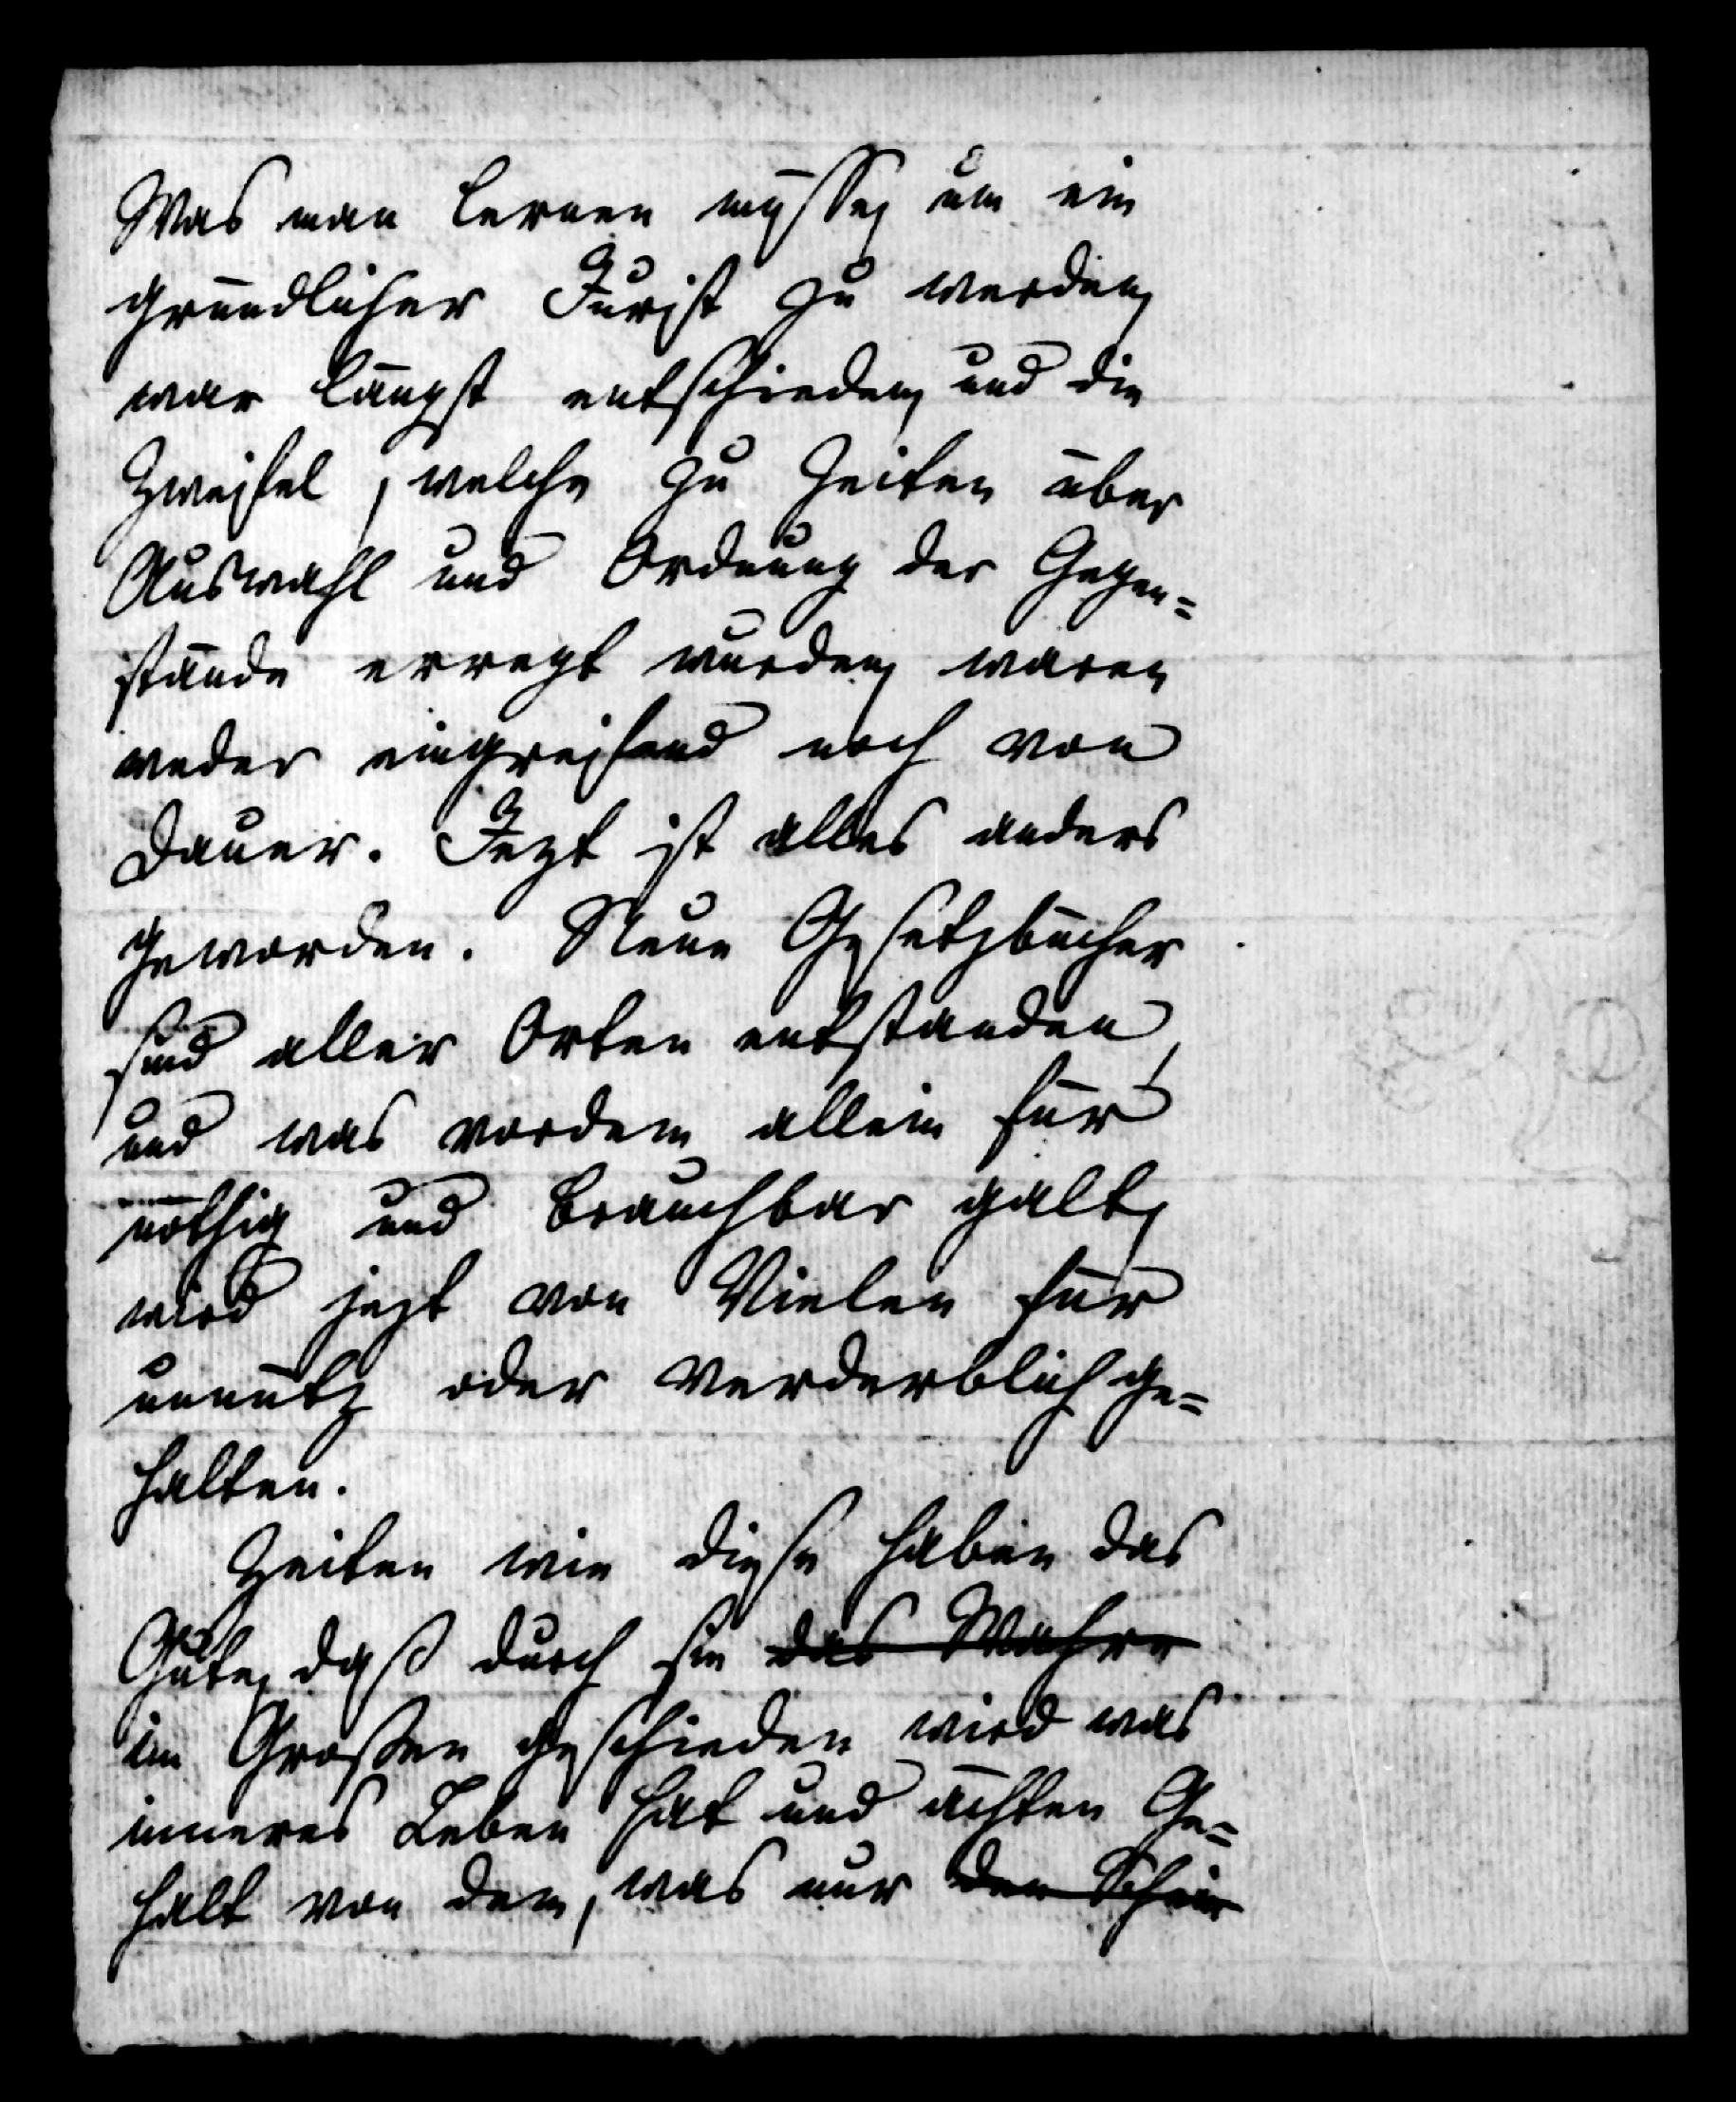 Was man lernen müsse, um ein
gründlicher Jurist zu werden,
war längst entschieden, und die
Zweifel, welche zu Zeiten über
Auswahl und Ordnung der Gegen=
stände erregt wurden, waren
weder eingreifend noch von
Dauer. Jezt ist alles anders
geworden. Neue Gesetzbücher
sind aller Orten entstanden,
und was vordem allein für
nöthig und brauchbar galt,
wird jezt von Vielen für
unnütz oder verderblich ge=
halten.
Zeiten wie diese haben das
Gute, daß durch sie das Wahre
im Großen geschieden wird was
inneres Leben hat und ächten Ge=
halt von dem, was nur den Schein